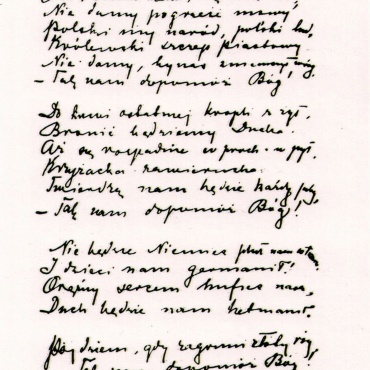 Nie damy pogrześć mowy,
Polski my naród, polski lud,
Królewski szczep Piastowy.
Nie damy, by nas zniemczył wróg,
– Tak nam dopomóż Bóg!
Do krwi ostatniej kropli z żył,
Bronić będziemy Ducha.
Aż się rozpadnie w proch i pył,
Krzyżacka zawierucha.
Twierdzą nam będzie każdy próg,
– Tak nam dopomóż Bóg!
Nie będzie Niemiec pluł nam w twarz
I dzieci nam germanił!
Orężny sercem hufiec nasz,
Duch będzie nam hetmanił.
Pójdziem, gdy zagrzmi złoty róg,
Tak nam dopomóż Bóg!